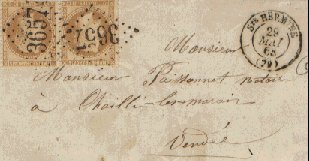 3657
3657
Ste HERMINE
29
MAI
68
(79)
Monsieur
Monsieur Paissonnet notaire
à Chaillé-les-marais
Vendée